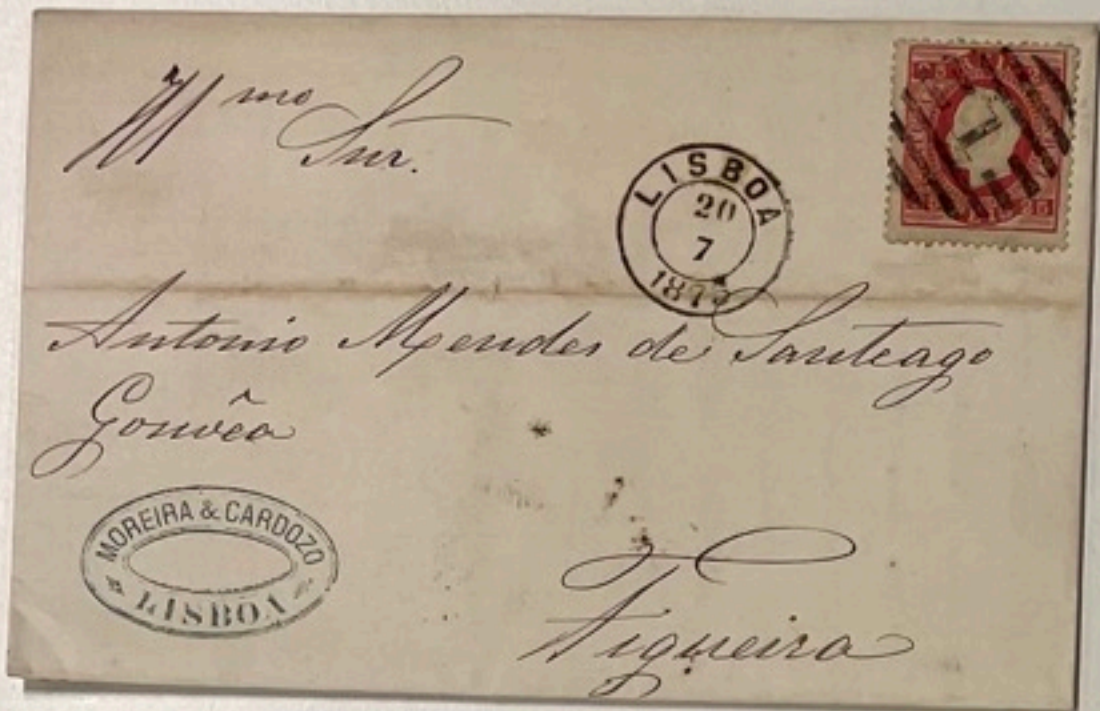 Illmo Snr.
LISBOA
20
7
Antonio Mendes de Santeago
Gouvêa
MOREIRA & CARDOZO
LISBOA
Figueira
1